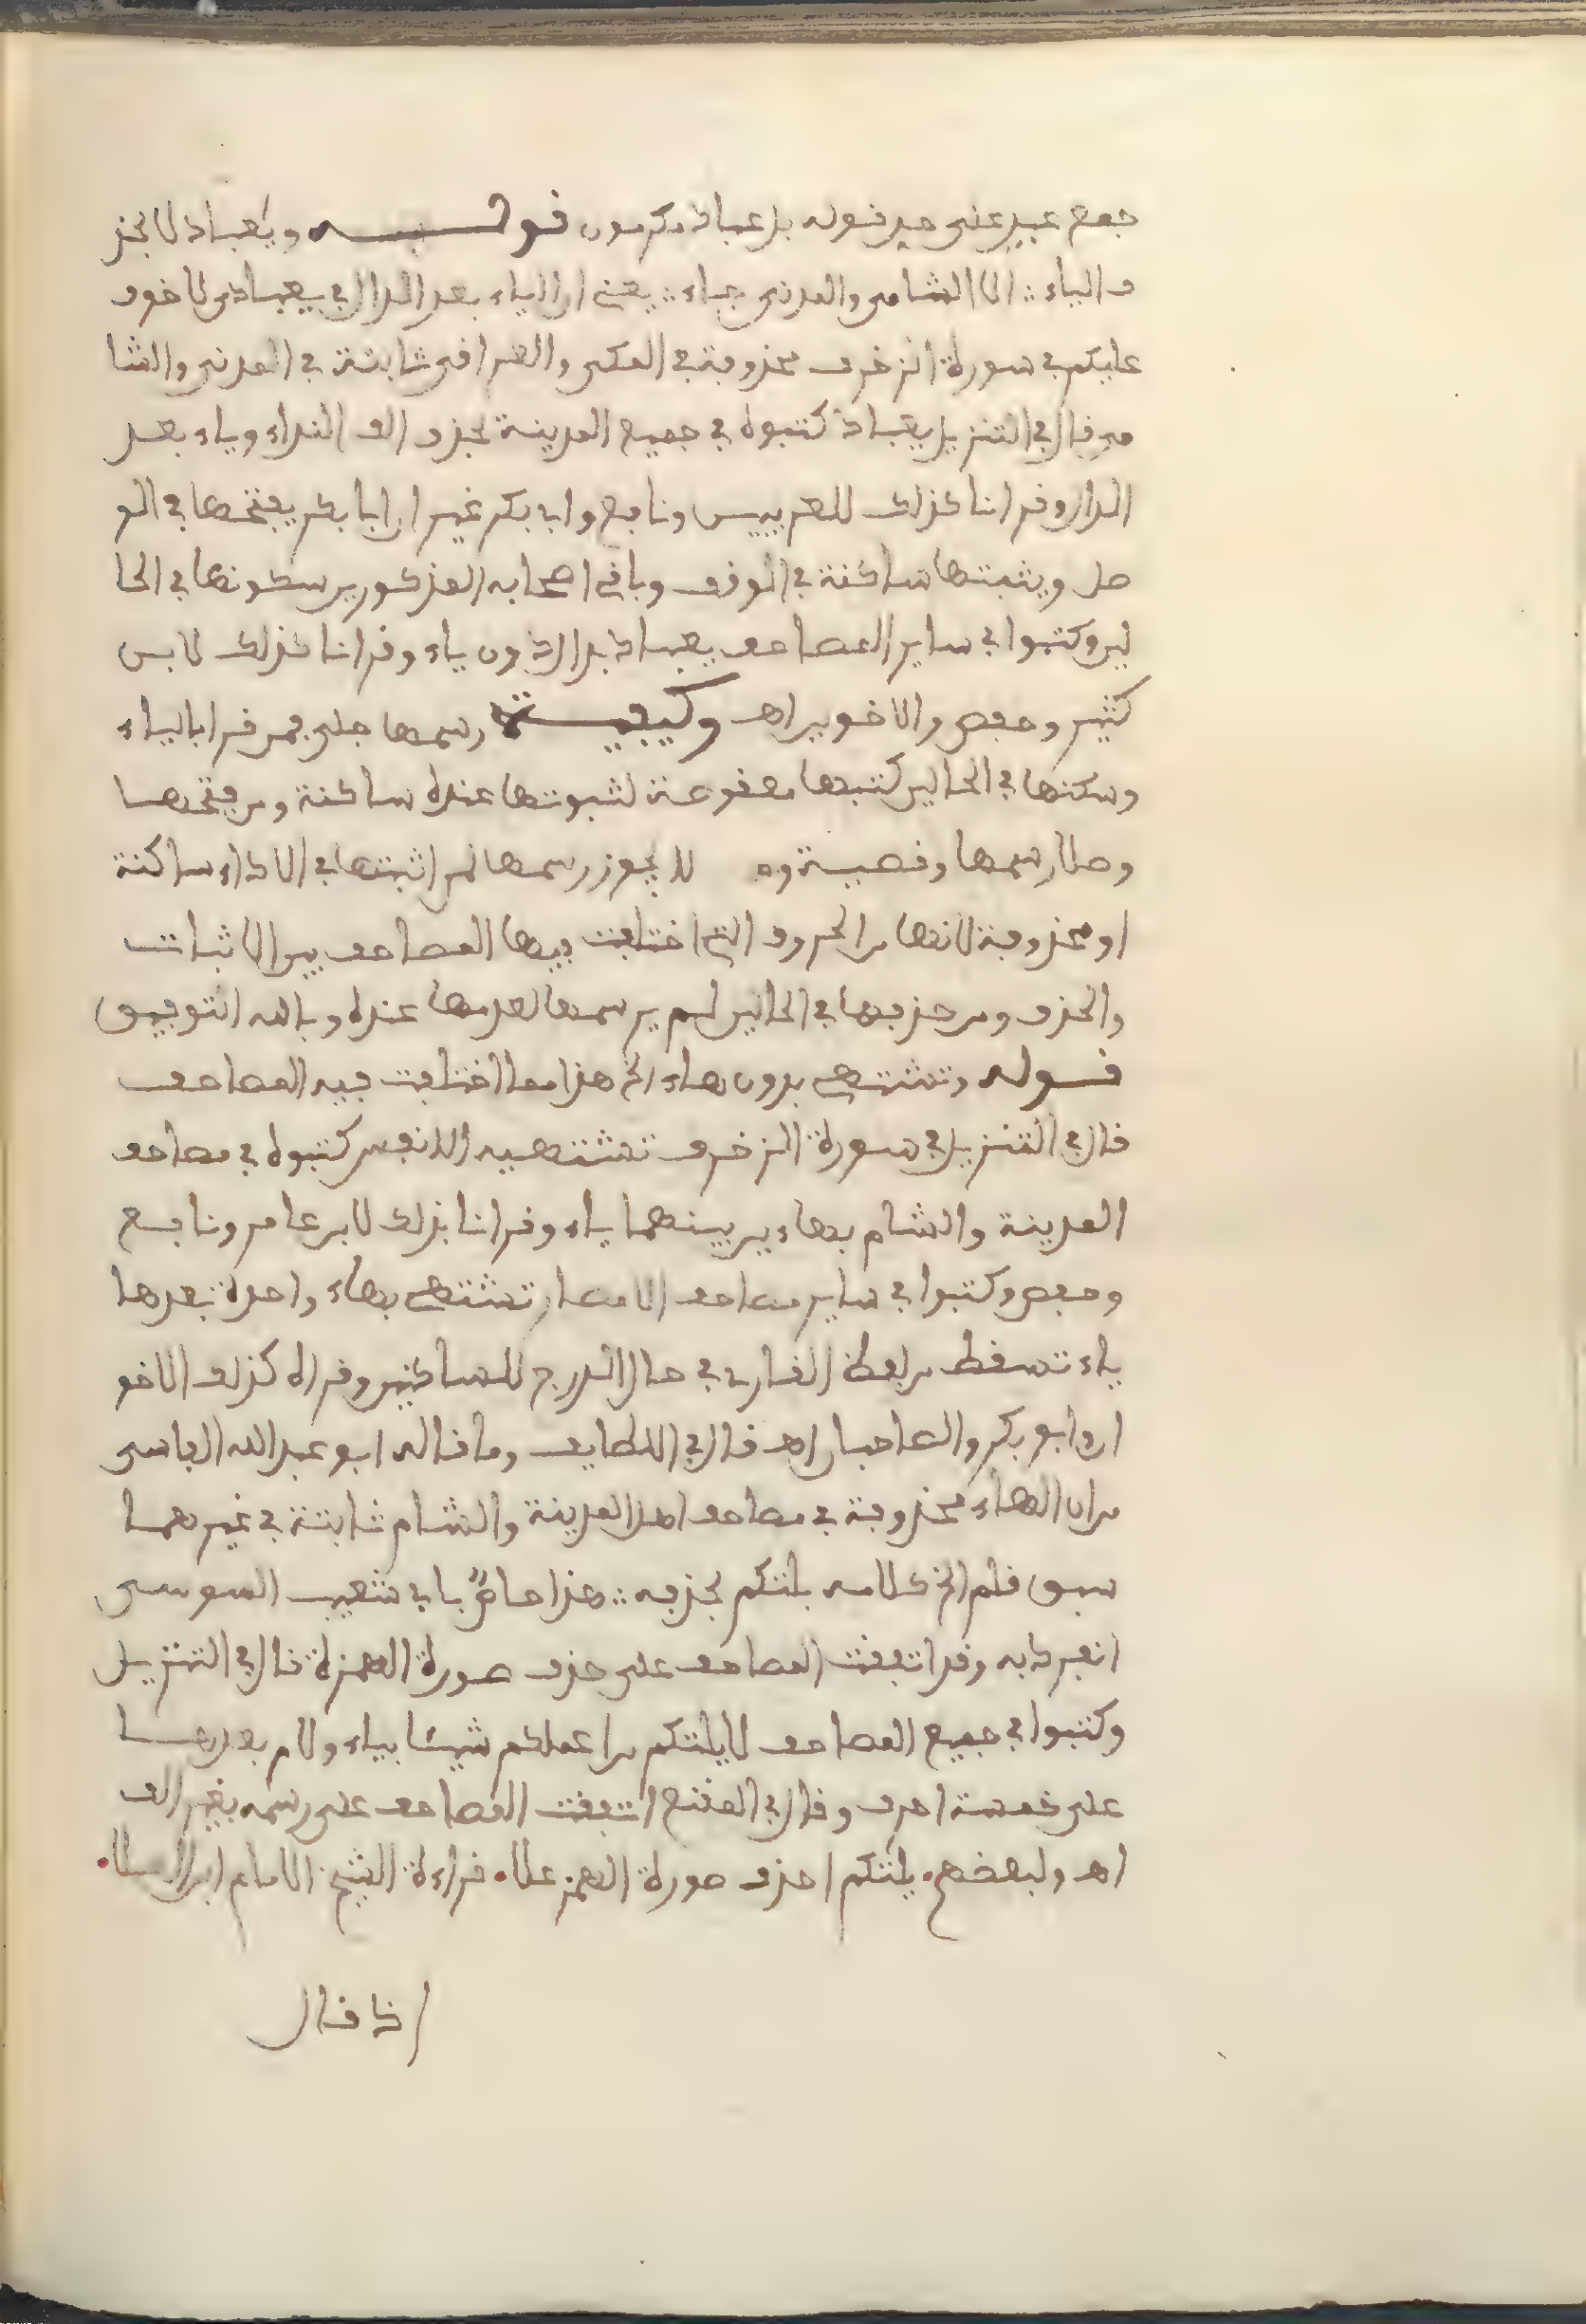 جمع عبد على حد قوله بل عباد مكرمون قوله ويعباد لا بحذ
ف الياء ∴ الا الشامي والمدني فياء ∴ يعني ان الياء بعد الدال في يعبادي لا خوف
عليكم في سورة الزخرف محذوفة في المكي والعراقي ثابتة في المدني والشا
مي قال في التنزيل يعباد كتبوه في جميع المدينة بحذف الف النداء وياء بعد
الدال وقرانا كذلك للعربيين ونافع وابي بكر غير ان ابا بكر يفتحها في الو
صل ويثبتها ساكنة في الوقف وباقي اصحابه المذكورين سكونها في الحا
لين وكتبوا في ساير المصاحف يعباد بدال دون ياء وقرانا كذلك لابن
كثير وحفص والاخوين اهـ وكيفية رسمها جلي فمن قرا بالياء
وسكنها في الحالين كتبها معقوصة لثبوتها عنده ساكنة ومن فتحها
وصلا رسمها وقصية ولا يجوز رسمها لمن اثبتها في الاداء ساكنة
او محذوفة لانها من الحروف التي اختلفت فيها المصاحف بين الاثبات
والحذف ومن حذفها في الحالين لم يرسمها لعدمها عنده وبالله التوفيق
قوله وتشتهي بدون هاء الخ هذا مما اختلفت فيه المصاحف
قال في التنزيل في سورة الزخرف تشتهيه الانفس كتبوه في مصاحف
المدينة والشام بهاءين بينهما ياء وقرانا بذلك لابن عامر ونافع
وحفص وكتبوا في ساير مصاحف الامصار تشتهي بهاء واحدة بعدها
ياء تسقط من لفظ القارئ في حال الدرج للساكنين وقراه كذلك الاخو
ان وابو بكر والصاحبان اهـ قال في اللطايف وما قاله ابو عبد الله الفاسي
من ان الهاء محذوفة في مصاحف اهل المدينة والشام ثابتة في غيرهما
سبق قلم الخ كلامه يلتكم بحذفه ∴ هذا خاص بابي شعيب السوسي
انفرد به وقد اتفقت المصاحف على حذف صورة الهمزة قال في التنزيل
وكتبوا في جميع المصاحف لا يلتكم من اعملكم شيئا بياء ولام بعدها
على خمسة احرف وقال في المقنع اتفقت المصاحف على رسمه بغير الف
اهـ ولبعضهم. يلتكم احذف صورة الهمز علا. قراءة الشيخ الامام ابن العلا.
اذا قال